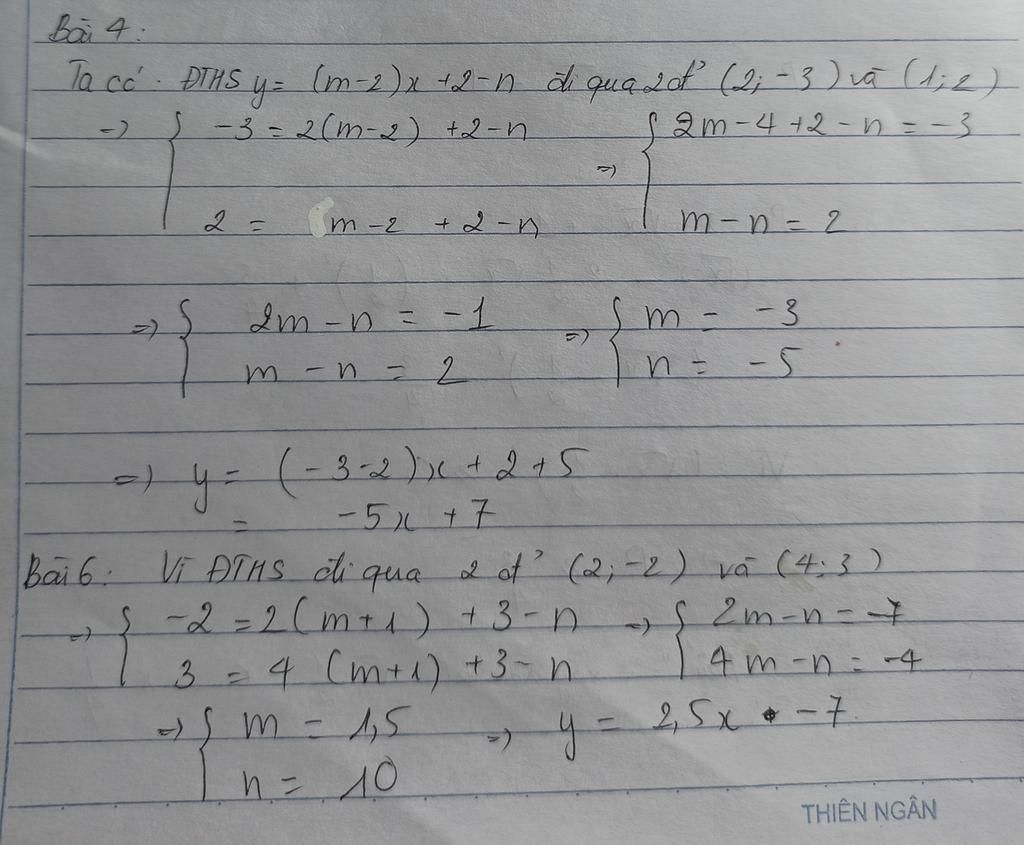 Bài 4:
Ta có: ĐTHS y = (m-2)x + 2 - n đi qua 2 đ' (2; -3) và (1; 2)
=> { -3 = 2(m-2) + 2 - n => { 2m - 4 + 2 - n = -3
2 = m - 2 + 2 - n m - n = 2
=> { 2m - n = -1 => { m = -3
m - n = 2 n = -5
=> y = (-3-2)x + 2 + 5
= -5x + 7
Bài 6: Vì ĐTHS đi qua 2 đ' (2; -2) và (4; 3)
=> { -2 = 2(m+1) + 3 - n => { 2m - n = -7
3 = 4(m+1) + 3 - n 4m - n = -4
=> { m = 1,5 => y = 2,5x - 7
n = 10
THIÊN NGÂN